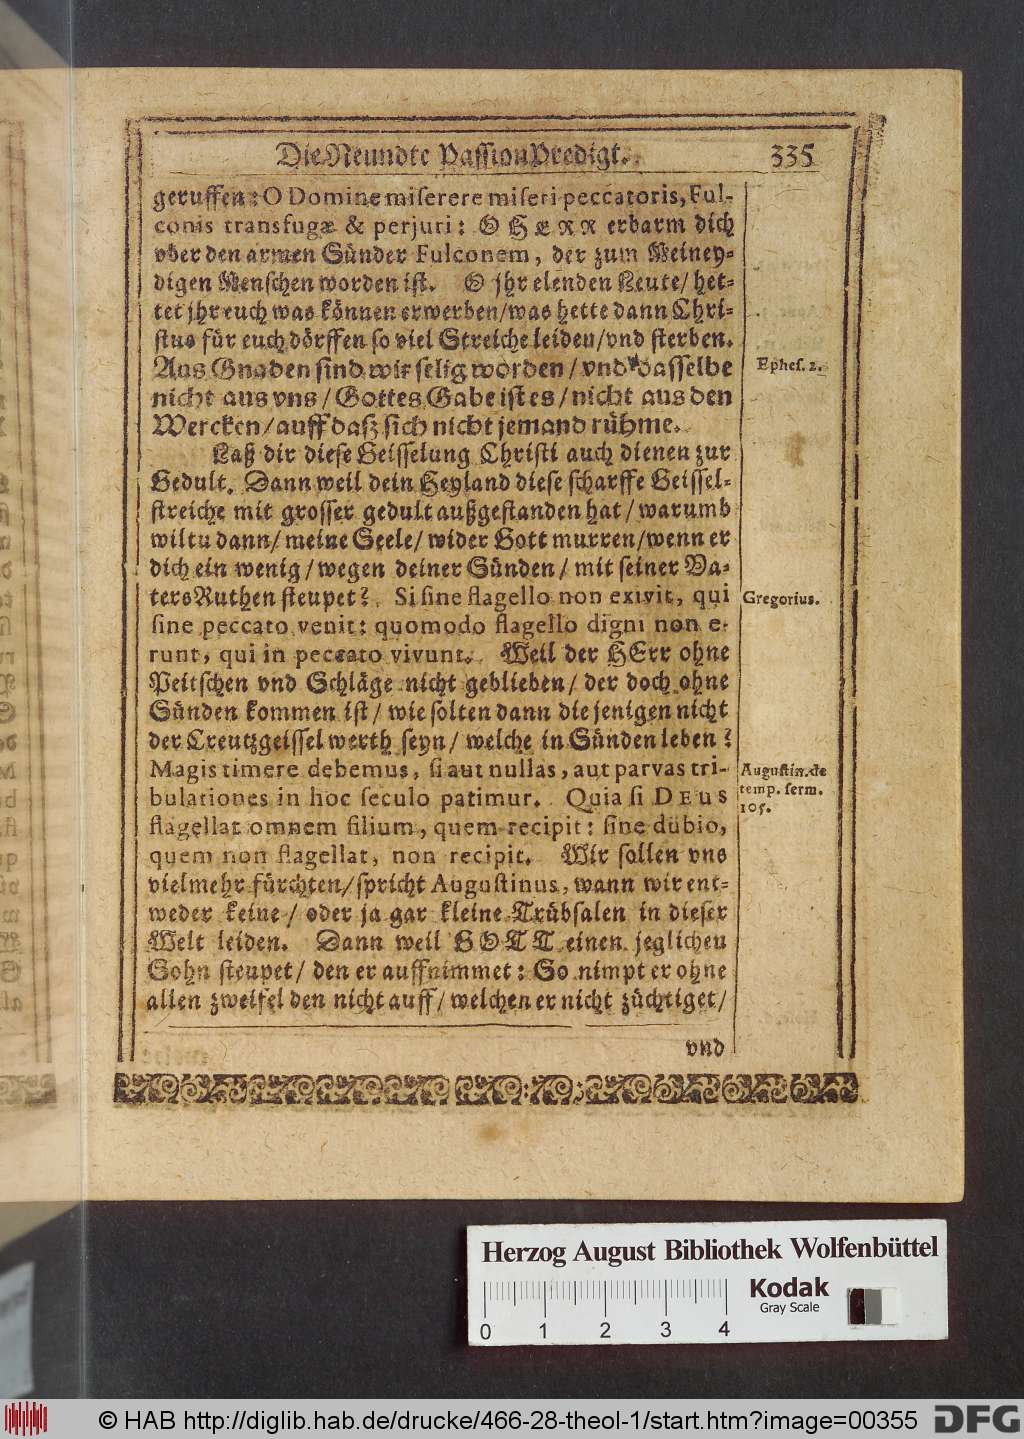 Die Neundte PassionPredigt. 335
geruffen: O Domine miserere miseri peccatoris, Ful-
conis transfugæ & perjuri: O HERR erbarm dich
vber den armen Sünder Fulconem, der zum Meiney-
digen Menschen worden ist. O jhr elenden Leute/ het-
tet jhr euch was können erwerben/ was hette dann Chri-
stus für euch dörffen so viel Streiche leiden/ vnd sterben.
Aus Gnaden sind wir selig worden/ vnd dasselbe
nicht aus vns/ Gottes Gabe ist es/ nicht aus den
Wercken/ auff daß sich nicht jemand rühme.
Ephes. 2.
Laß dir diese Geisselung Christi auch dienen zur
Gedult. Dann weil dein Heyland diese scharffe Geissel-
streiche mit grosser gedult außgestanden hat/ warumb
wiltu dann/ meine Seele/ wider Gott murren/ wenn er
dich ein wenig/ wegen deiner Sünden/ mit seiner Va-
ters Ruthen steupet? Si sine flagello non exivit, qui
Gregorius.
sine peccato venit: quomodo flagello digni non e-
runt, qui in peccato vivunt. Weil der HErr ohne
Peitschen vnd Schläge nicht geblieben/ der doch ohne
Sünden kommen ist/ wie solten dann die jenigen nicht
der Creutzgeissel werth seyn/ welche in Sünden leben?
Magis timere debemus, si aut nullas, aut parvas tri-
bulationes in hoc seculo patimur. Quia si DEUS
flagellat omnem filium, quem recipit: sine dubio,
quem non flagellat, non recipit. Wir sollen vns
Augustin. de
temp. serm.
105.
vielmehr fürchten/ spricht Augustinus, wann wir ent-
weder keine/ oder ja gar kleine Trübsalen in dieser
Welt leiden. Dann weil GOTT einen jeglichen
Sohn steupet/ den er auffnimmet: So nimpt er ohne
allen zweifel den nicht auff/ welchen er nicht züchtiget/
vnd
Herzog August Bibliothek Wolfenbüttel
0 1 2 3 4
Kodak
Gray Scale
© HAB http://diglib.hab.de/drucke/466-28-theol-1/start.htm?image=00355
DFG